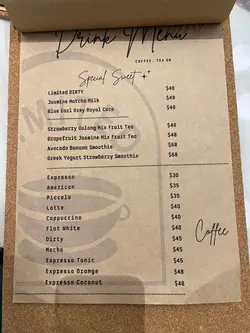 Drink Menu
COFFEE, TEA OR
Special Sweet
Limited DIRTY $48
Jasmine Matcha Milk $48
Blue Earl Grey Royal Coco $48
Strawberry Oolong Mix Fruit Tea $48
Grapefruit Jasmine Mix Fruit Tea $48
Avocado Banana Smoothie $68
Greek Yogurt Strawberry Smoothie $68
Coffee
Espresso $30
American $35
Piccolo $35
Latte $40
Cappuccino $40
Flat White $40
Dirty $45
Mocha $45
Espresso Tonic $45
Espresso Orange $48
Espresso Coconut $48